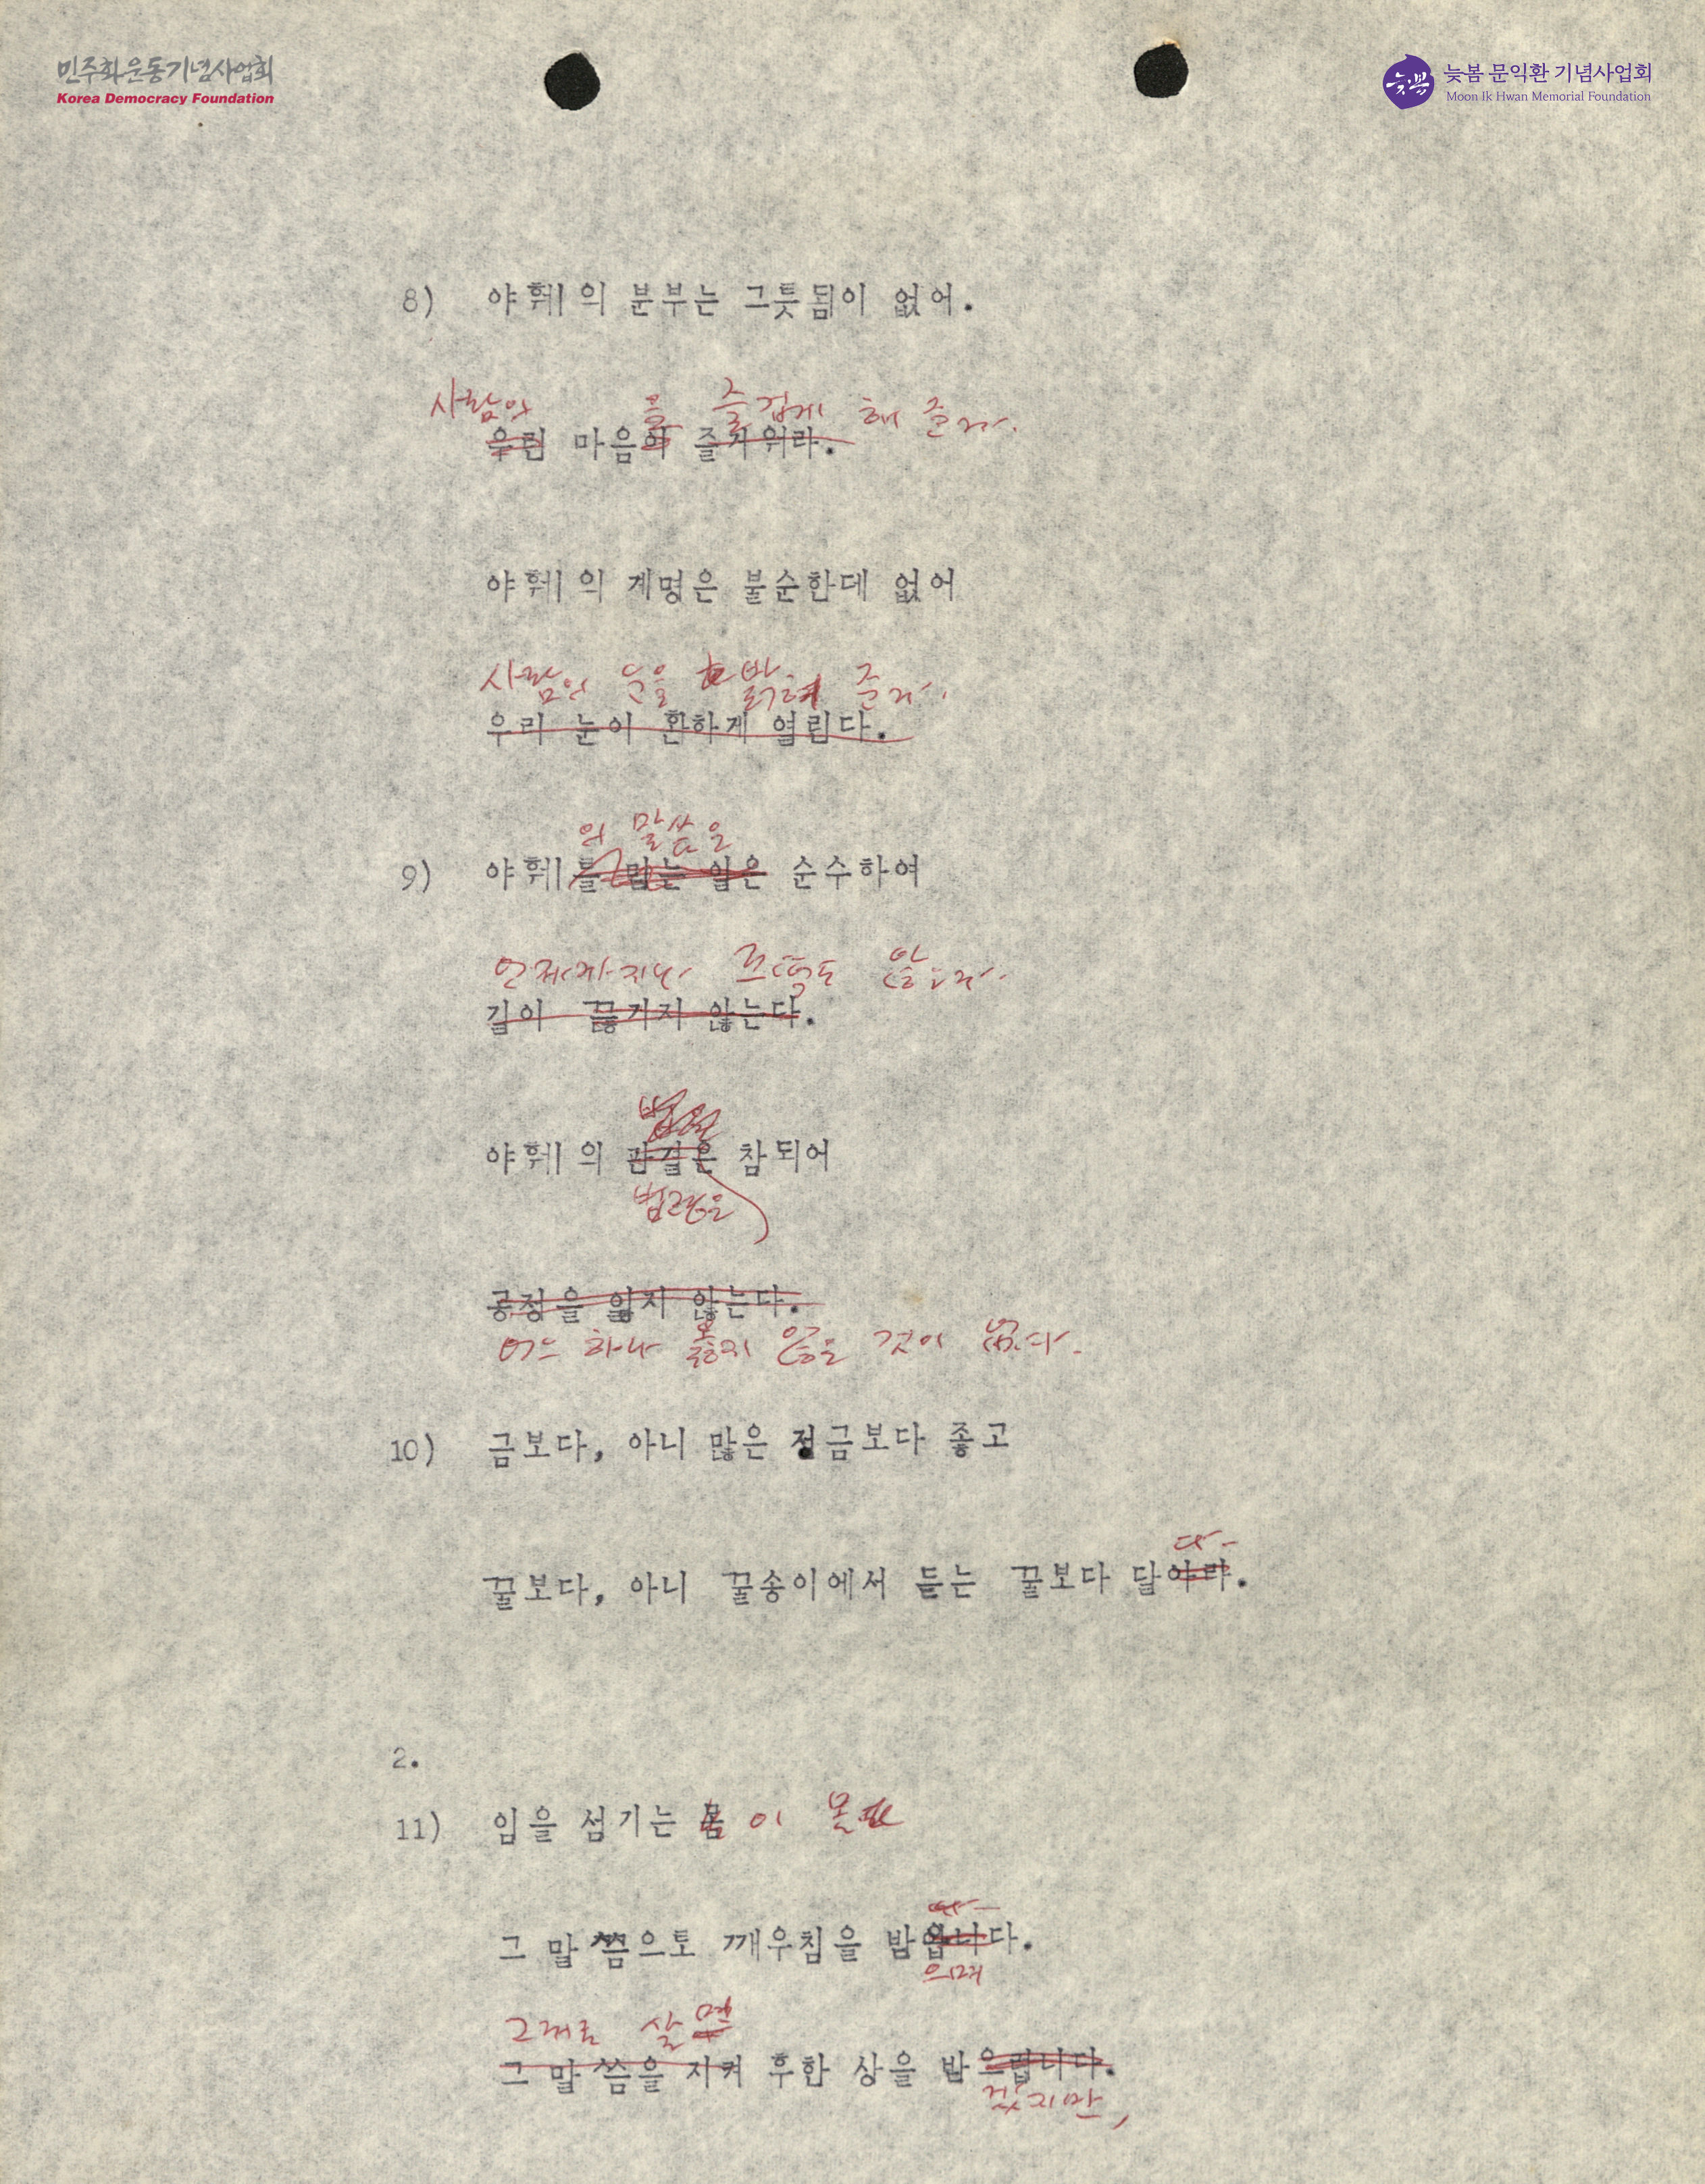 민주화운동기념사업회
Korea Democracy Foundation
늦봄
늦봄 문익환 기념사업회
Moon Ik Hwan Memorial Foundation
8) 야훼의 분부는 그릇됨이 없어.
사람의 을 즐겁게 해 준다.
우린 마음이 즐거워라.
야훼의 계명은 불순한데 없어
사람의 눈을 밝혀 준다.
우리 눈이 환하게 열린다.
의 말씀은
9) 야훼를 순수하여
언제까지나 흐덕도 않는다.
길이 끊기지 않는다.
야훼의 은 참되어
법령은
공정을 잃지 않는다.
어느 하나 옳지 않은 것이 없다.
10) 금보다, 아니 많은 정금보다 좋고
다.
꿀보다, 아니 꿀송이에서 듣는 꿀보다 달아라.
2.
11) 임을 섬기는 몸 이 몸
그 말씀으로 깨우침을 받읍니다.
으며
그대로 살면
그 말씀을 지켜 후한 상을 받으립니다.
겠지만,